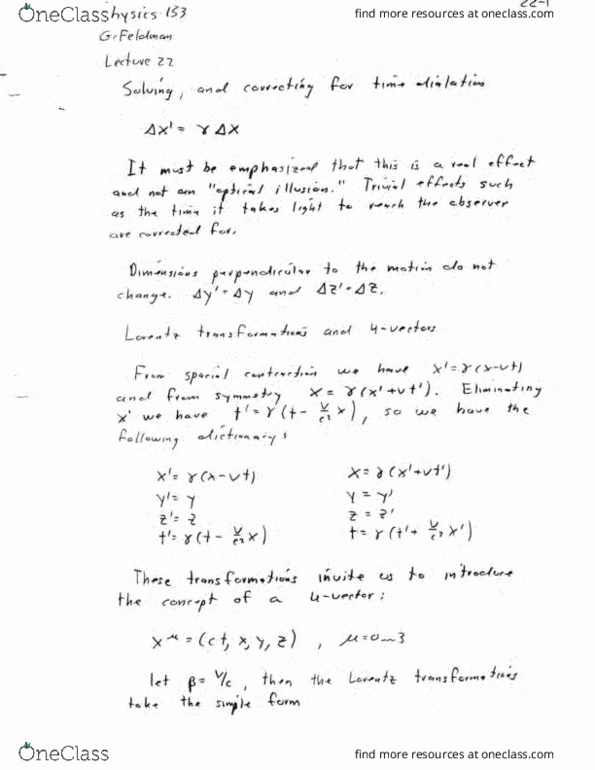 OneClass
find more resources at oneclass.com
hysics 153
22-1
G. Feldman
Lecture 22
Solving, and correcting for time dialation
Δx' = γ Δx
It must be emphasized that this is a real effect
and not an "optical illusion." Trivial effects such
as the time it takes light to reach the observer
are corrected for.
Dimensions perpendicular to the motion do not
change. Δy' = Δy and Δz' = Δz.
Lorentz transformations and 4-vectors
From spacial contraction we have x' = γ(x-vt)
and from symmetry x = γ(x'+vt'). Eliminating
x' we have t' = γ(t - v/c² x), so we have the
following dictionary:
x' = γ(x-vt) x = γ(x'+vt')
y' = y y = y'
z' = z z = z'
t' = γ(t - v/c² x) t = γ(t' + v/c² x')
These transformations invite us to introduce
the concept of a 4-vector:
x^μ = (ct, x, y, z) , μ=0—3
let β = v/c, then the Lorentz transformations
take the simple form
OneClass
find more resources at oneclass.com